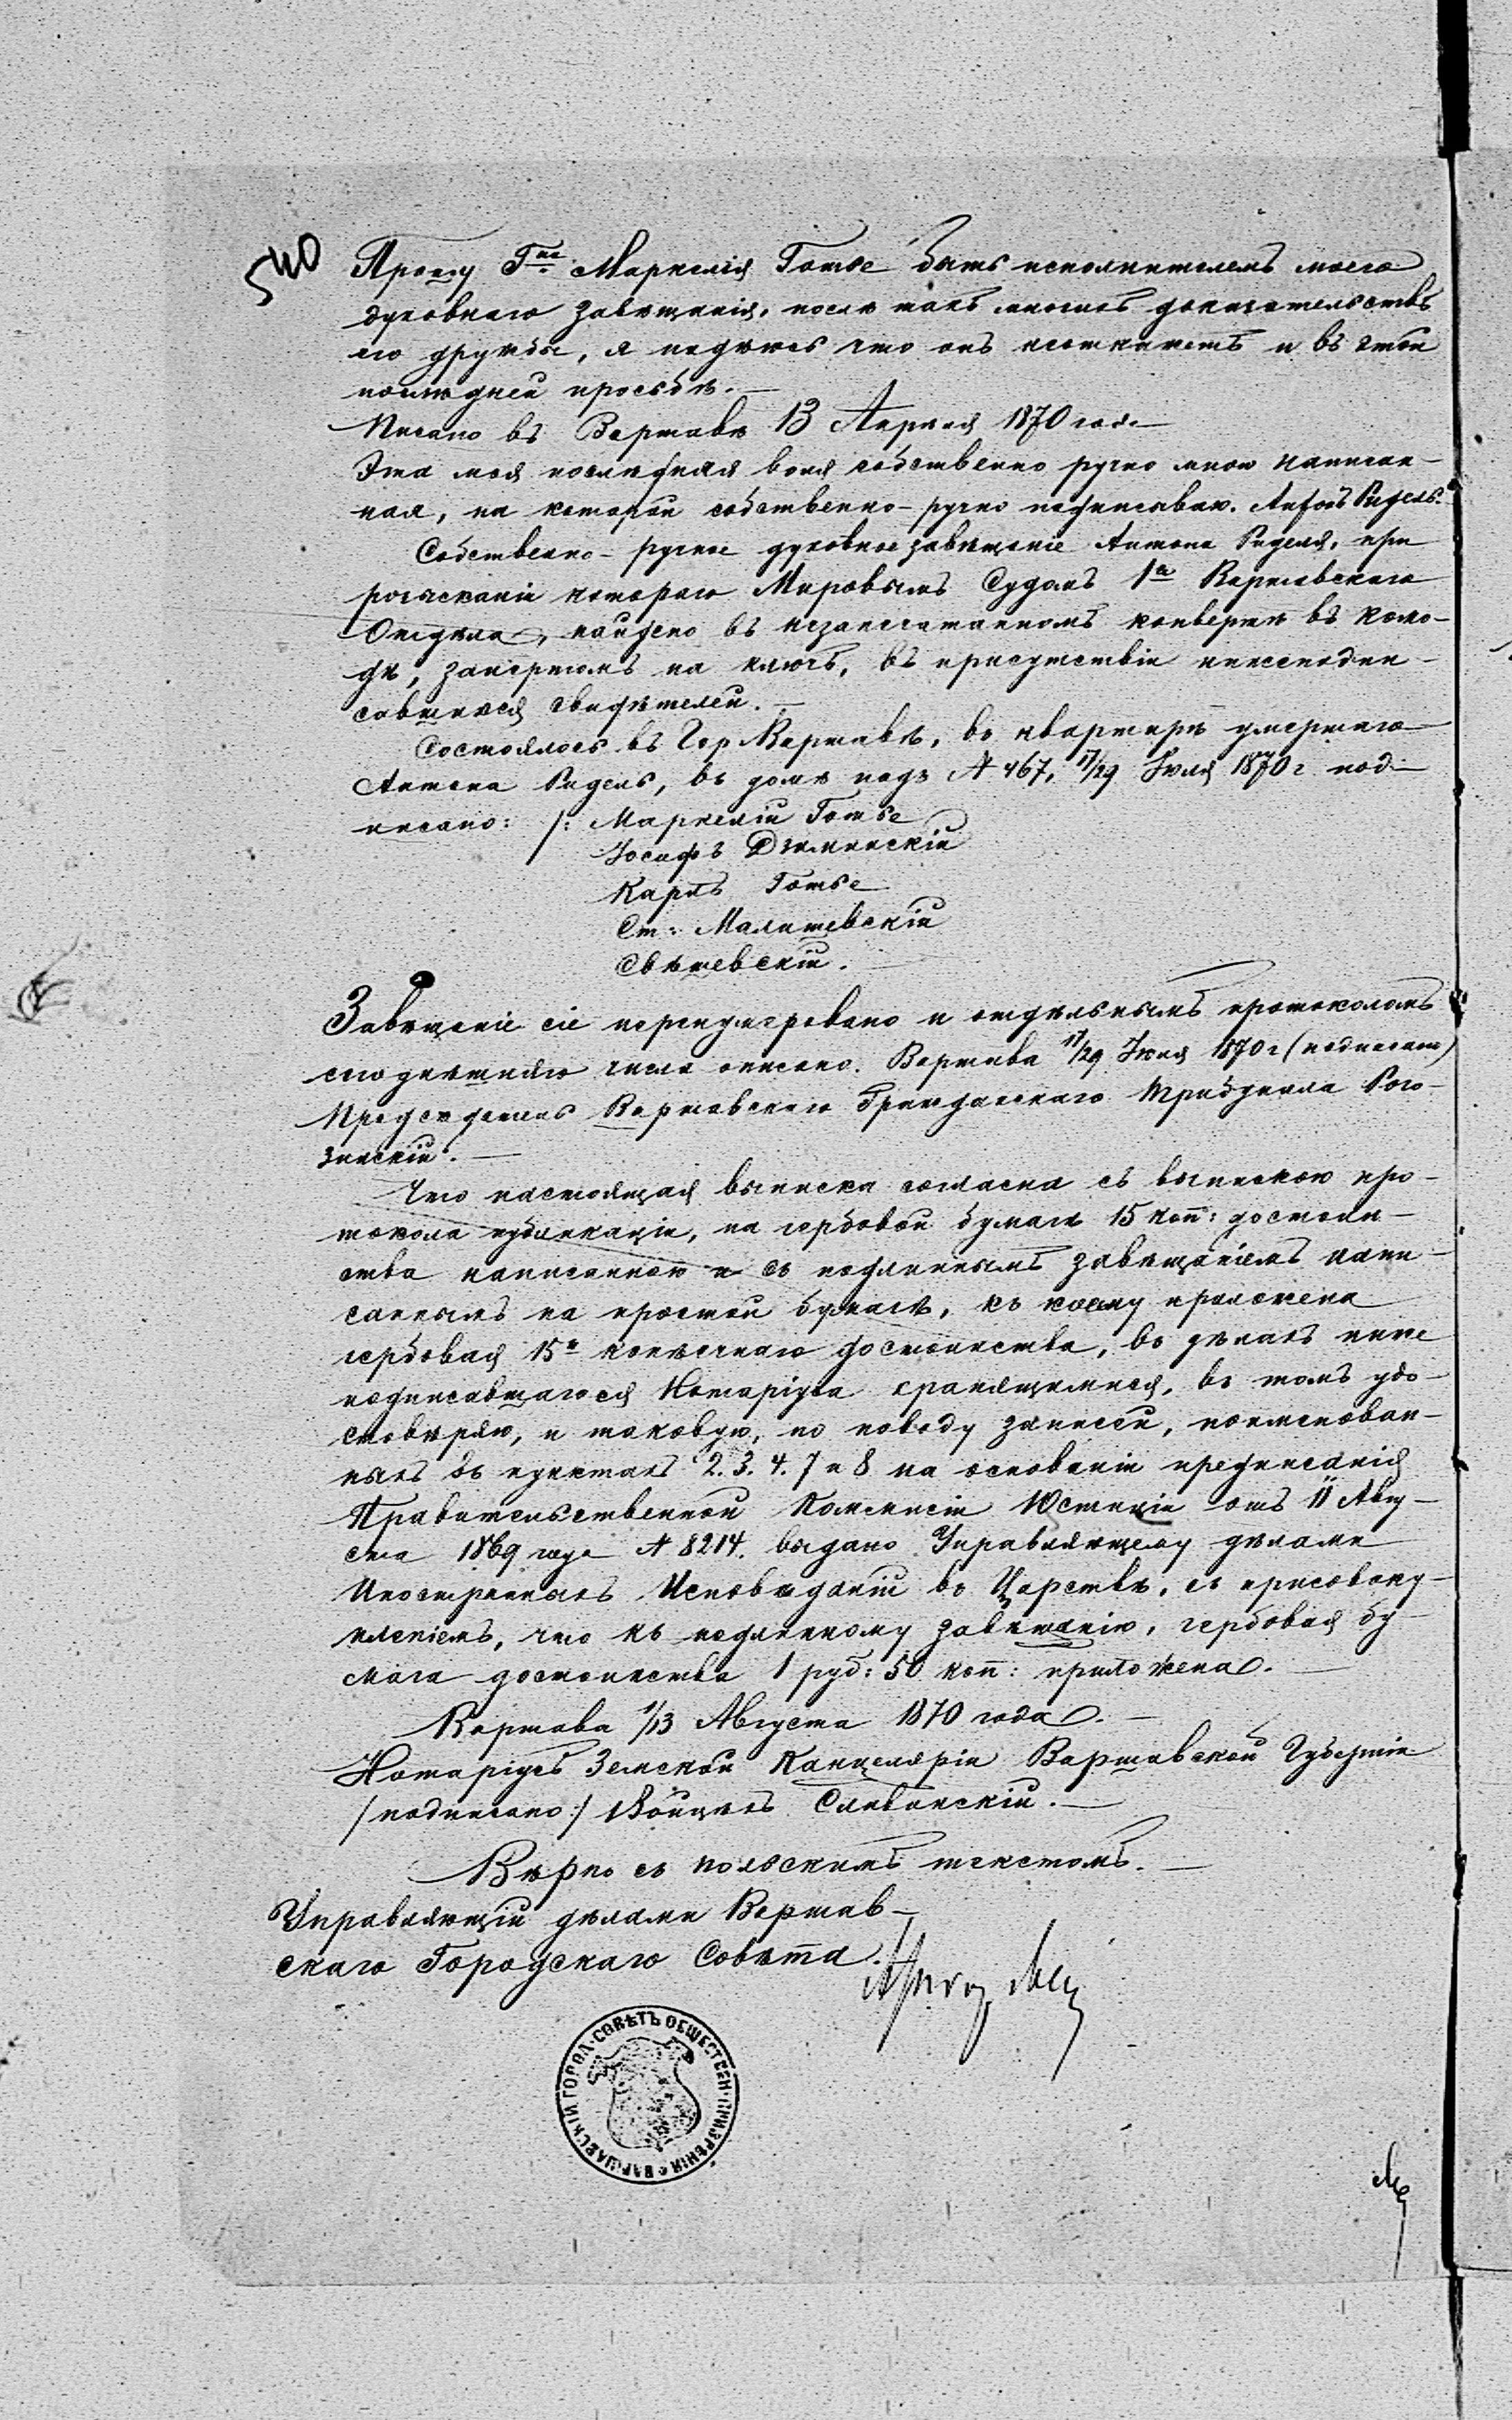 540
Прошу Гна Маркелія Готье быть исполнителемъ моего
духовнаго завѣщанія, послѣ такъ многихъ доказательствъ
его дружбы, я надѣюсь что онъ неоткажетъ и въ этой
послѣдней просьбѣ. —
Писано въ Варшавѣ 13 Апрѣля 1870 года —
Эта моя послѣдняя воля собственно ручно мною написан-
ная, на которой собственно-ручно подписываю. Антонъ Ридель.
Собственно-ручное духовное завѣщаніе Антона Риделя, при
розысканіи котораго Мировымъ Судомъ 1го Варшавскаго
Отдѣла, найдено въ незапечатанномъ конвертѣ въ комо-
дѣ, запертомъ на ключъ, въ присутствіи нижеподпи-
савшихся свидѣтелей. —
Состоялось въ Гор Варшавѣ, въ квартирѣ умершаго
Антона Ридель, въ домѣ подъ N 467, 17/29 Іюля 1870 г. под-
писано: /: Маркелій Готье
Іосифъ Дзиминскій
Карлъ Готье
Ст: Малишевскій
Свѣшевскій. —
Завѣщаніе сіе перенумеровано и отдѣльнымъ протоколомъ
сегодняшняго числа описано. Варшава 17/29 Іюля 1870 г (подписалъ)
Предсѣдатель Варшавскаго Гражданскаго Трибунала Рого-
зинскій. —
Что настоящая выписка согласна съ выпискою про-
токола публикаціи, на гербовой бумагѣ 15 коп: достоин-
ства написанною и съ подлиннымъ завѣщаніемъ напи-
саннымъ на простой бумагѣ, къ коему приложена
гербовая 15и копѣечнаго достоинства, въ дѣлахъ ниже
подписавшагося Нотаріуса хранящимися, въ томъ удо-
стовѣряю, и таковую, по поводу записей, поименован-
ныхъ въ пунктахъ 2. 3. 4. 7 и 8 на основаніи предписанія
Правительственной Коммисіи Юстиціи отъ 11 Авгу-
ста 1869 года N 8214. выдано Управляющему дѣлами
Иностранныхъ Исповѣданій въ Царствѣ, съ присовоку-
пленіемъ, что къ подлинному завѣщанію, гербовая бу-
мага достоинства 1 руб: 50 коп: приложена. —
Варшава 1/13 Августа 1870 года. —
Нотаріусъ Земской Канцеляріи Варшавской Губерніи
/подписано:/ Войцѣхъ Сливинскій. —
Вѣрно съ польскимъ текстомъ. —
Управляющій дѣлами Варшав-
скаго Городскаго Совѣта.
ВАРШАВСКІЙ ГОРОД. СОВѢТЪ ОБЩЕСТВЕН. ПРИЗРѢНІЯ